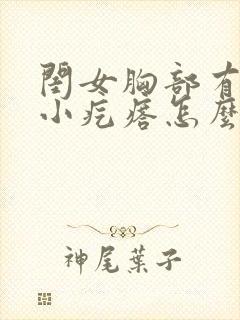 閨女胸部有
小疙瘩怎麼
神尾葉子